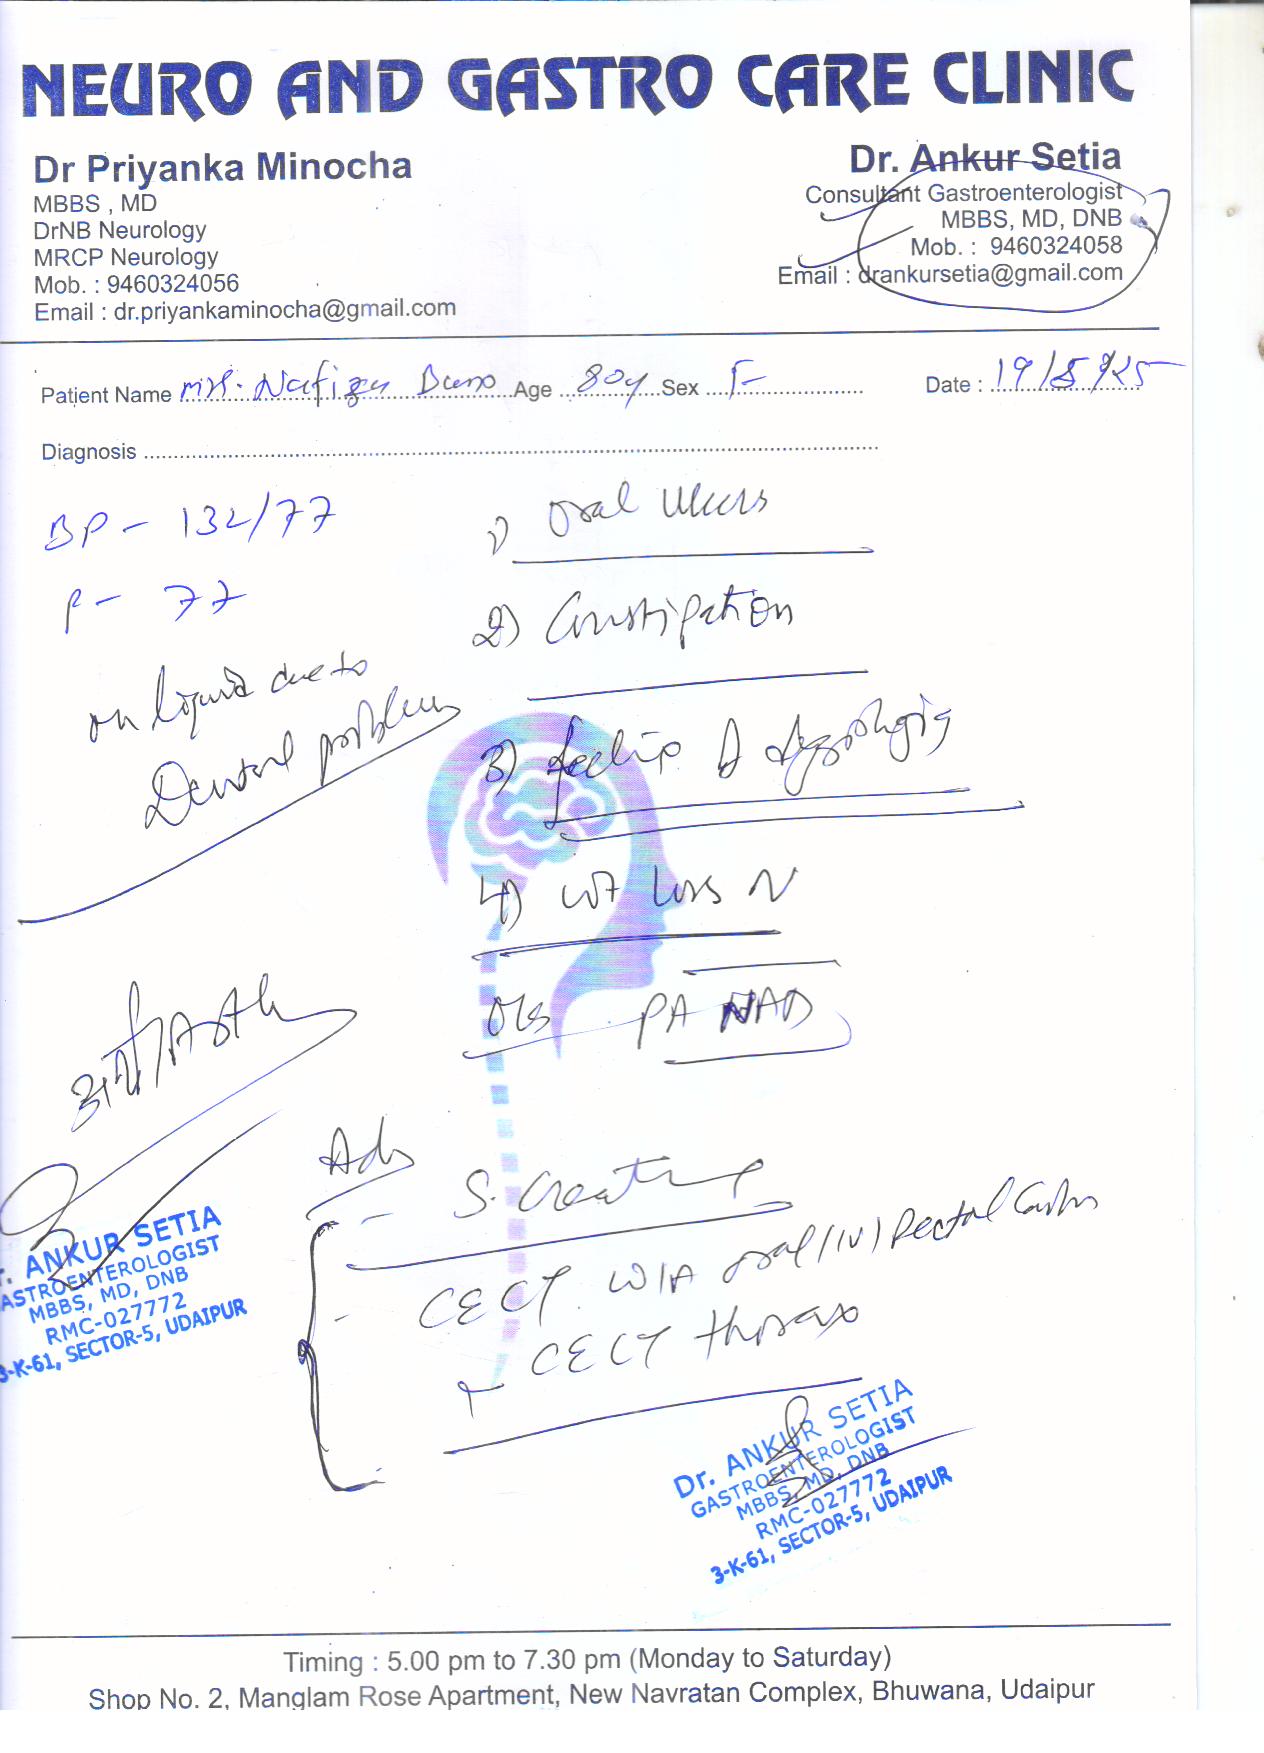 NEURO AND GASTRO CARE CLINIC
Dr Priyanka Minocha
MBBS , MD
DrNB Neurology
MRCP Neurology
Mob. : 9460324056
Email : dr.priyankaminocha@gmail.com
Dr. Ankur Setia
Consultant Gastroenterologist
MBBS, MD, DNB
Mob. : 9460324058
Email : drankursetia@gmail.com
Patient Name Mrs. Age 80y Sex F Date : 19/8/25
Diagnosis
BP - 132/77
P - 77
on liquid due to
Dental problem
1) Oral Ulcers
2) Constipation
3) feeling of dysphagia
4) wt loss N
O/E PA NAD
Adv
- S. Creatinine
- CECT W/A oral/IV/Rectal
CECT thorax
ANKUR SETIA
GASTROENTEROLOGIST
MBBS, MD, DNB
RMC-027772
3-K-61, SECTOR-5, UDAIPUR
Dr. ANKUR SETIA
GASTROENTEROLOGIST
MBBS, MD, DNB
RMC-027772
3-K-61, SECTOR-5, UDAIPUR
Timing : 5.00 pm to 7.30 pm (Monday to Saturday)
Shop No. 2, Manglam Rose Apartment, New Navratan Complex, Bhuwana, Udaipur